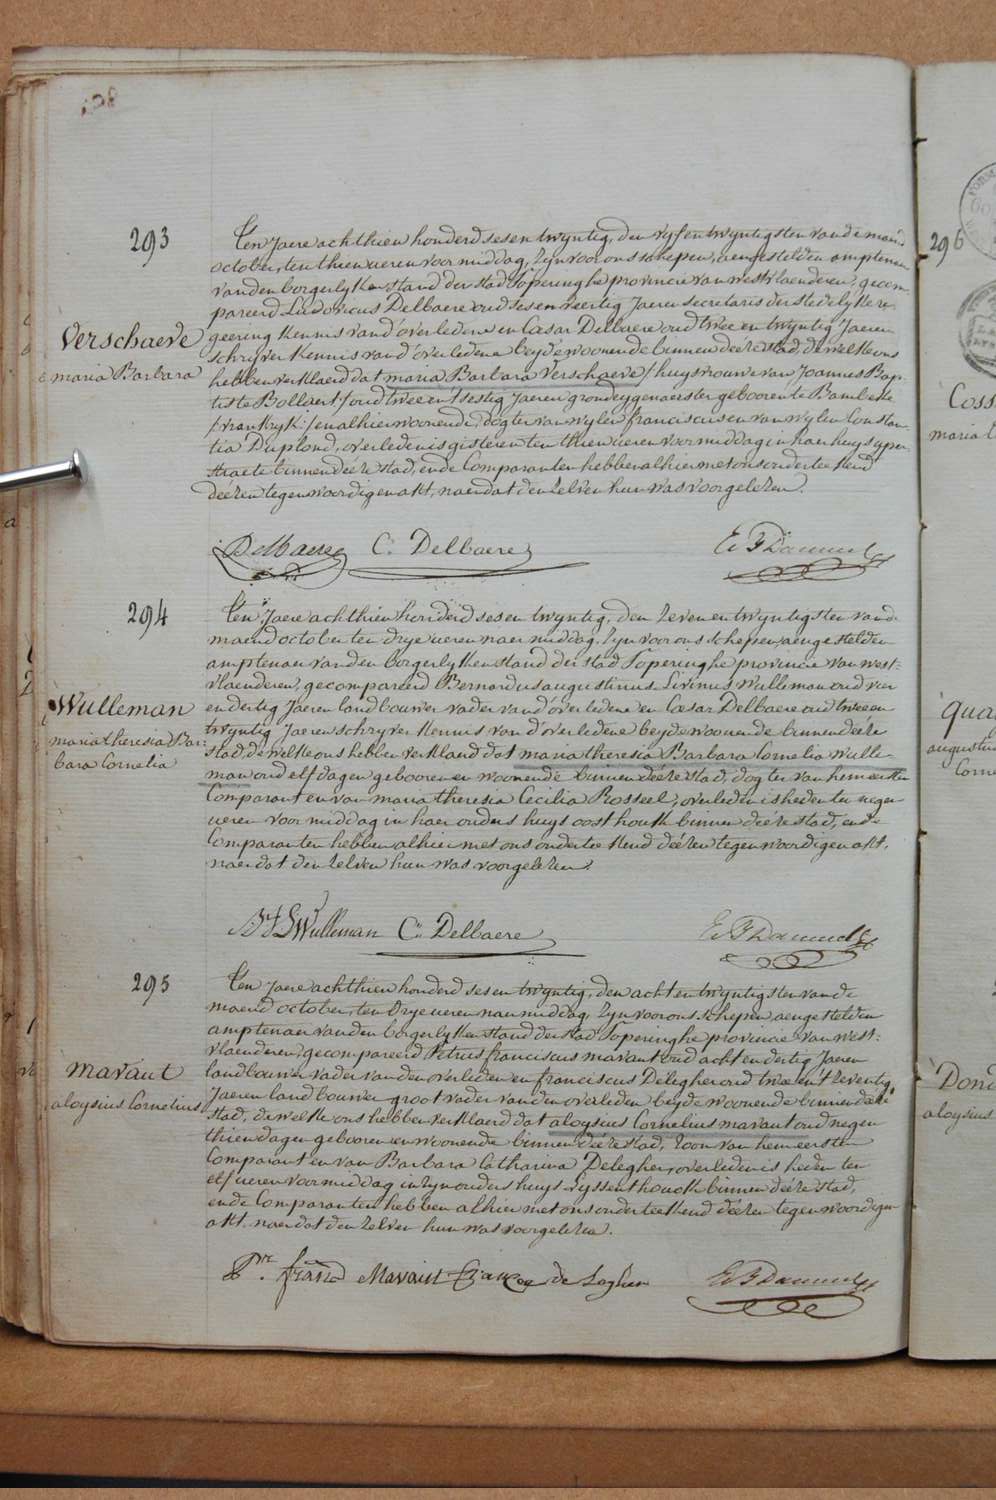 293
Verschaeve
maria Barbara
Ten Jaere achthien honderd ses en twyntig, den vyf en twyntigsten van de maend
october, ten thien ueren voor middag, zyn voor ons schepen, aengestelden amptenaer
van den borgerlyken stand der stad Poperinghe provincie van westvlaenderen, gecom-
pareerd Ludovicus Delbaere oud ses en veertig Jaeren secretaris der stedelyke re-
geering kennis van d'overledene en Cæsar Delbaere oud twee en twyntig Jaeren
schryver kennis van d'overledene beyde woonende binnen deéze stad, de welke ons
hebben verklaerd dat maria Barbara Verschaeve / huysvrouwe van Joannes Bap-
tiste Bollaert / oud twee en t'sestig Jaeren grondeygenaerster gebooren te Bambeke
/ vrankryk: / en alhier woonende, dogter van wylen franciscus en van wylen Constan-
tia Duplond, overleden is gisteren ten thien ueren voor middag in haer huys yper-
straete binnen deéze stad, ende Comparanten hebben alhier met ons onderteekend
deézen tegenwoordigen akt, naer dat den zelven hun was voorgelezen.
Delbaere C. Delbaere
294
Wulleman
maria theresia Bar-
bara Cornelia
Ten Jaere achthien honderd ses en twyntig, den zeven en twyntigsten van d.
maend october ten drye ueren naer middag, zyn voor ons schepen, aengestelden
amptenaer van den borgerlyken stand der stad Poperinghe provincie van west-
vlaenderen, gecompareerd Bernardus augustinus Livinus Wulleman oud vier
en dertig Jaeren landbouwer vader van d'overledene en Cæsar Delbaere oud twee en
twyntig Jaeren schryver kennis van d'overledene beyde woonende binnen deéze
stad, de welke ons hebben verklaerd dat maria theresia Barbara Cornelia Wulle-
man oud elf dagen gebooren en woonende binnen deéze stad, dogter van hem eersten
Comparant en van maria theresia Cecilia Rosseel, overleden is heden ten negen
ueren voor middag in haer ouders huys oosthouk binnen deéze stad, ende
Comparanten hebben alhier met ons onderteekend deézen tegenwoordigen akt,
naer dat den zelven hun was voorgelezen.
Wulleman C. Delbaere
295
Mavaut
aloysius Cornelius
Ten Jaere achthien honderd ses en twyntig, den acht en twyntigsten van de
maend october, ten drye ueren naer middag zyn voor ons schepen, aengestelden
amptenaer van den borgerlyken stand der stad Poperinghe provincie van west-
vlaenderen, gecompareerd Petrus franciscus mavaut oud acht en dertig Jaeren
landbouwer vader van den overleden en franciscus Delegher oud twee en t'zeventig
Jaeren landbouwer groot vader van den overleden beyde woonende binnen deéze
stad, de welke ons hebben verklaerd dat aloysius Cornelius mavaut oud negen
thien dagen gebooren en woonende binnen deéze stad, zoon van hem eersten
Comparant en van Barbara Catharina Delegher, overleden is heden ten
elf ueren voor middag in zyn ouders huys Ryssenthouck binnen deéze stad,
ende Comparanten hebben alhier met ons onderteekend deézen tegenwoordigen
akt naer dat den zelven hun was voorgelezen.
franc Mavaut de Legher
296
Coss
maria
Qua
augustin
Corne
Dond
aloysius